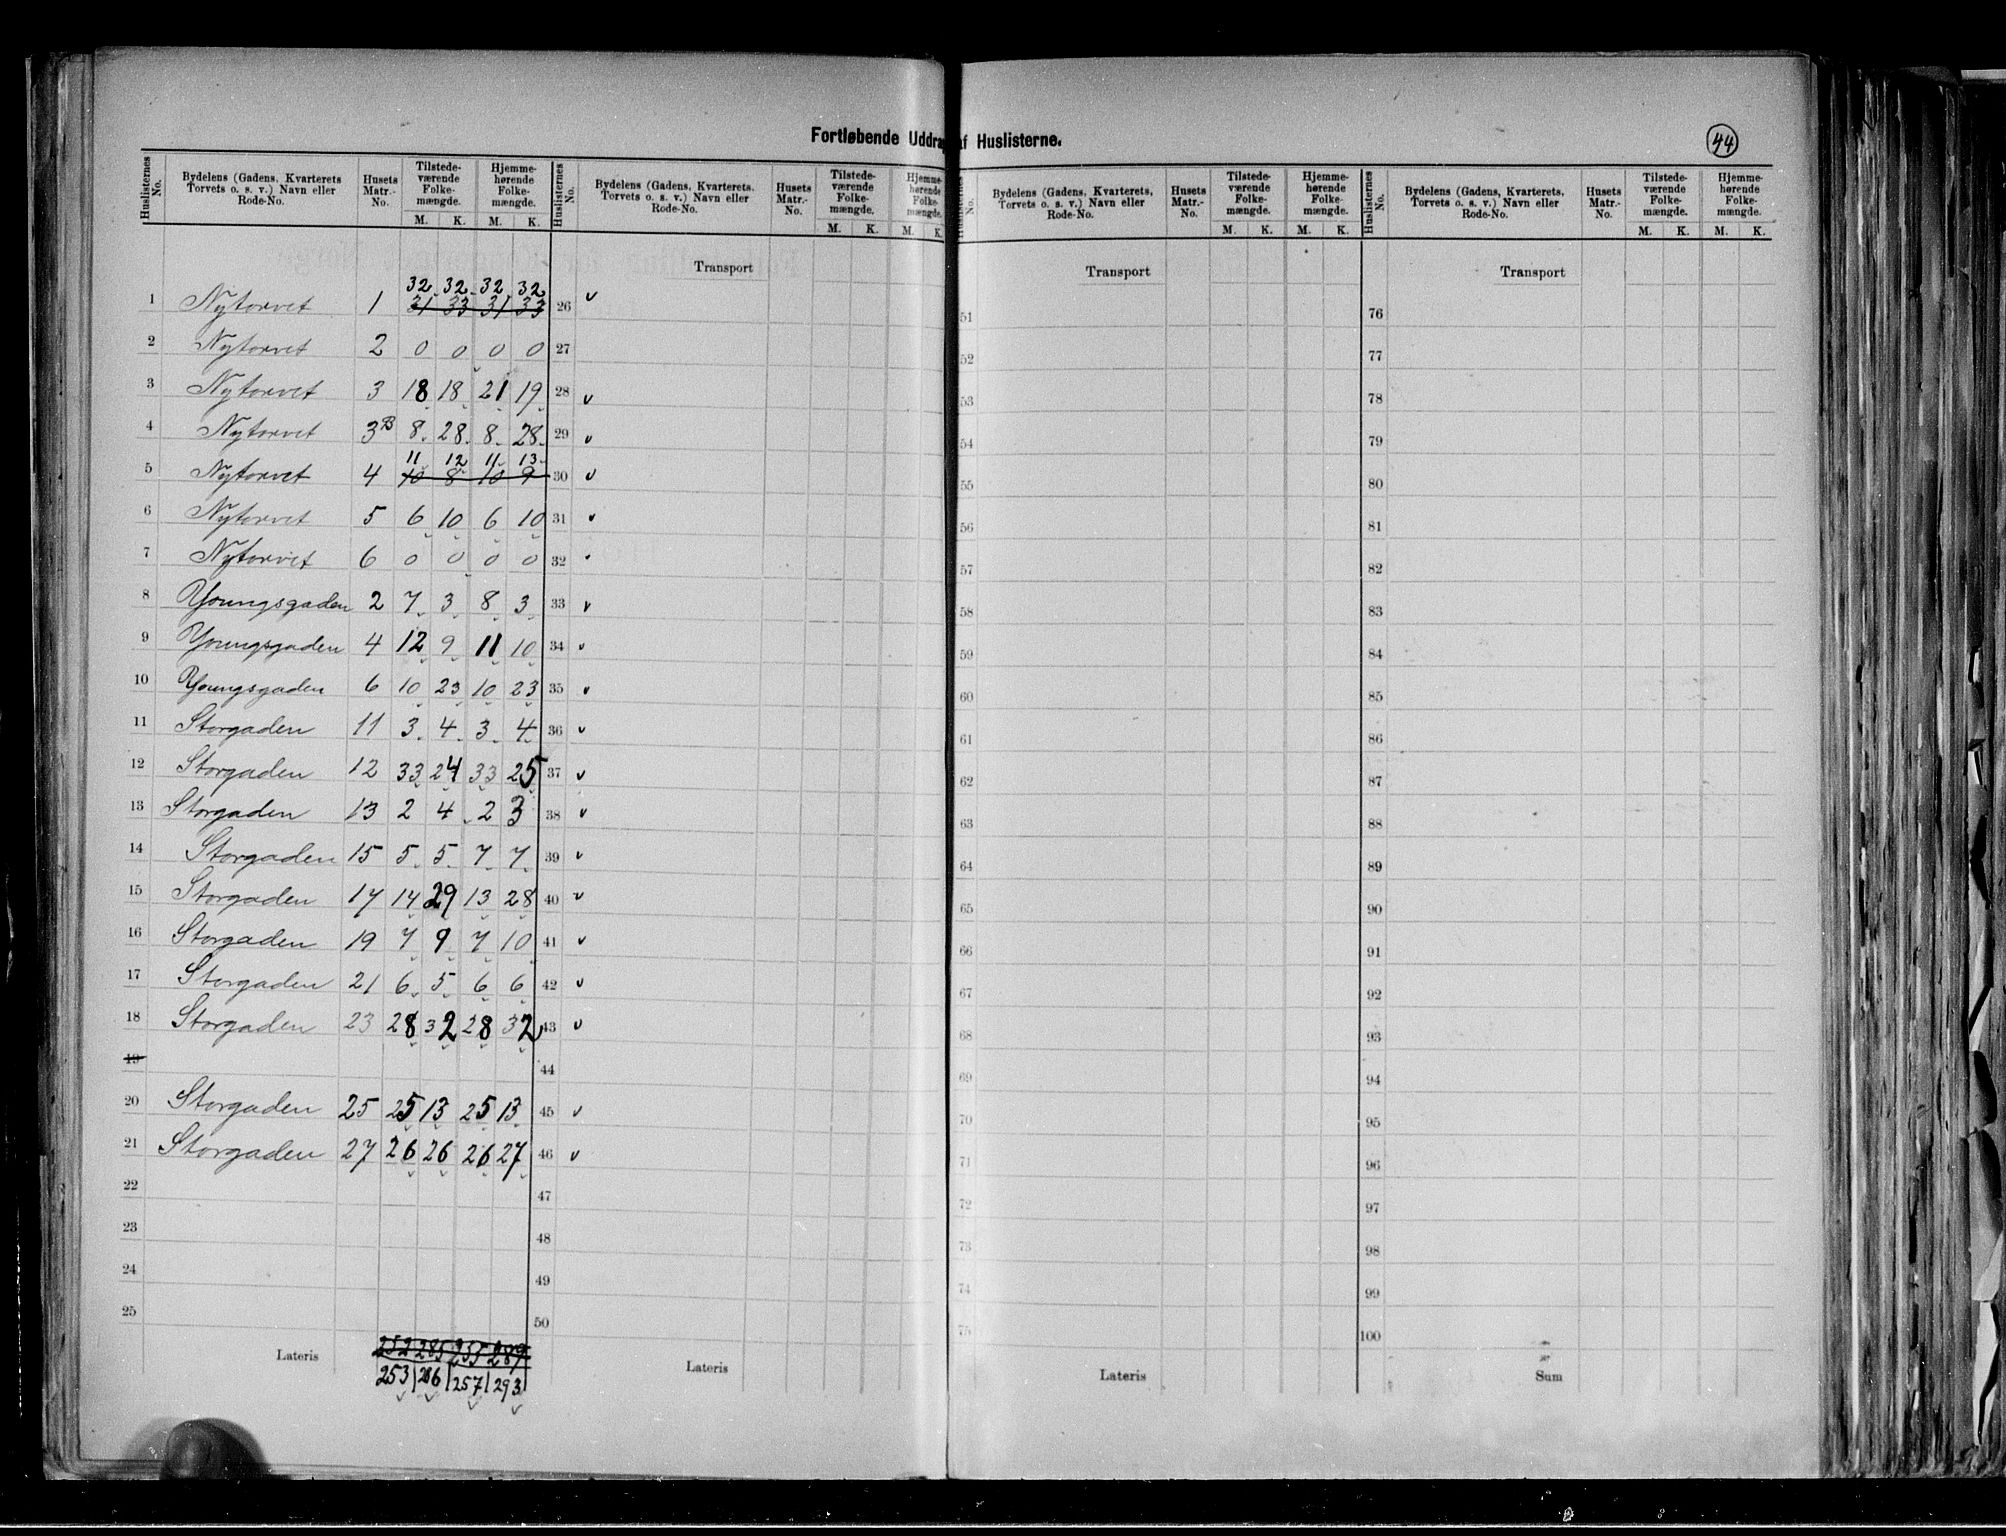 Fortløbende Uddrag af Huslisterne.
44
Huslisternes No. | Bydelens (Gadens, Kvarterets Torvets o. s. v.) Navn eller Rode-No. | Husets Matr.-No. | Tilstedeværende Folkemængde. M. K. | Hjemmehørende Folkemængde. M. K.
1 Nytorvet 1 32 32 32 32
31 33 31 33
2 Nytorvet 2 0 0 0 0
3 Nytorvet 3 18 18 21 19
4 Nytorvet 3B 8 28 8 28
5 Nytorvet 4 11 12 11 13
10 8 10 9
6 Nytorvet 5 6 10 6 10
7 Nytorvet 6 0 0 0 0
8 Youngsgaden 2 7 3 8 3
9 Youngsgaden 4 12 9 11 10
10 Youngsgaden 6 10 23 10 23
11 Storgaden 11 3 4 3 4
12 Storgaden 12 33 24 33 25
13 Storgaden 13 2 4 2 3
14 Storgaden 15 5 5 7 7
15 Storgaden 17 14 29 13 28
16 Storgaden 19 7 9 7 10
17 Storgaden 21 6 5 6 6
18 Storgaden 23 28 32 28 32
19
20 Storgaden 25 25 13 25 13
21 Storgaden 27 26 26 26 27
22
23
24
25
252 285 255 289
Lateris 253 286 257 293
Huslisternes No. | Bydelens (Gadens, Kvarterets, Torvets o. s. v.) Navn eller Rode-No. | Husets Matr.-No. | Tilstedeværende Folkemængde. M. K. | Hjemmehørende Folkemængde. M. K.
Transport
26
27
28
29
30
31
32
33
34
35
36
37
38
39
40
41
42
43
44
45
46
47
48
49
50
Lateris
Huslisternes No. | Bydelens (Gadens, Kvarterets, Torvets o. s. v.) Navn eller Rode-No. | Husets Matr.-No. | Tilstedeværende Folkemængde. M. K. | Hjemmehørende Folkemængde. M. K.
Transport
51
52
53
54
55
56
57
58
59
60
61
62
63
64
65
66
67
68
69
70
71
72
73
74
75
Lateris
Huslisternes No. | Bydelens (Gadens, Kvarterets, Torvets o. s. v.) Navn eller Rode-No. | Husets Matr.-No. | Tilstedeværende Folkemængde. M. K. | Hjemmehørende Folkemængde. M. K.
Transport
76
77
78
79
80
81
82
83
84
85
86
87
88
89
90
91
92
93
94
95
96
97
98
99
100
Sum